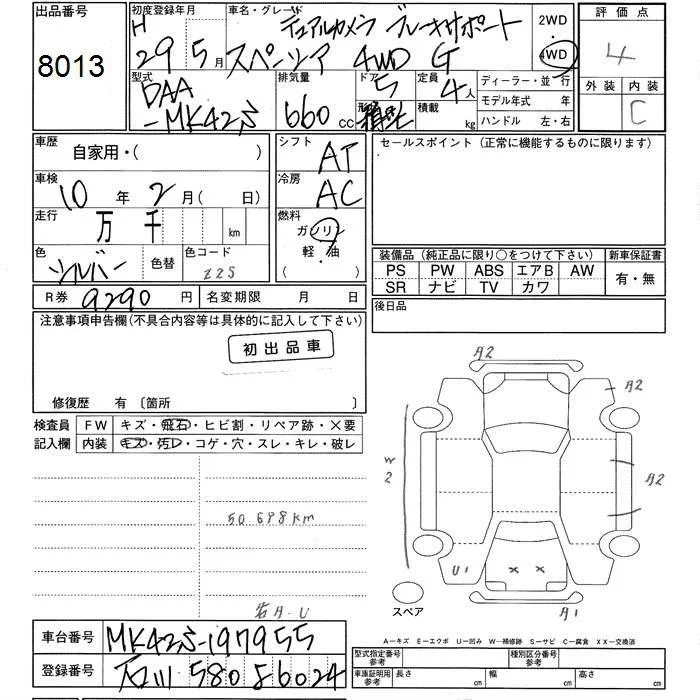 出品番号
8013
初度登録年月 車名・グレード
H デュアルカメラ ブレーキサポート
29 5月 スペーシア 4WD G
2WD
4WD
評価点
4
外装 内装
C
型式 排気量 ドア 定員 ディーラー・並行
DAA
-MK42S 660 cc 5 4人
形状 積載 kg
モデル年式 年
ハンドル 左・右
車歴 自家用・( )
シフト AT
セールスポイント (正常に機能するものに限ります)
車検 10年 2月( 日)
冷房 AC
走行 万 千 km
燃料 ガソリン
軽・油
( )
色 シルバー 色替 色コード
Z2S
装備品 (純正品に限り○をつけて下さい) 新車保証書
PS PW ABS エアB AW 有・無
SR ナビ TV カワ
R券 9290 円 名変期限 月 日
後日品
注意事項申告欄(不具合内容等は具体的に記入して下さい)
初出品車
修復歴 有 〔箇所 〕
検査員 FW キズ・飛石・ヒビ割・リペア跡・×要
記入欄 内装 キズ・汚レ・コゲ・穴・スレ・キレ・破レ
50.698km
A2
A2
W
2
A2
U1 × ×
A1
スペア
A−キズ E−エクボ U−凹み W−補修跡 S−サビ C−腐食 XX−交換済
車台番号 MK42S-197955
登録番号 石川 580 き6024
型式指定番号 参考 種別区分番号 参考
車庫証明用 参考 長さ cm 幅 cm 高さ cm